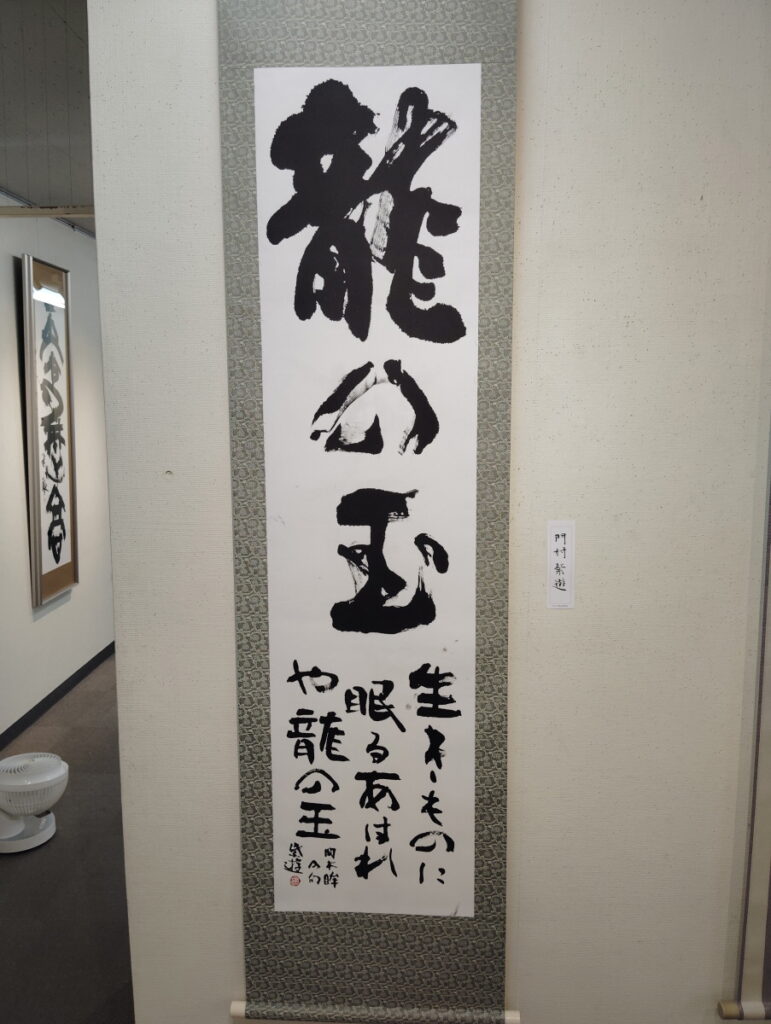 龍の玉
生きものに
眠るあはれ
や龍の玉
岡本眸
の句
紫遊
門村紫遊